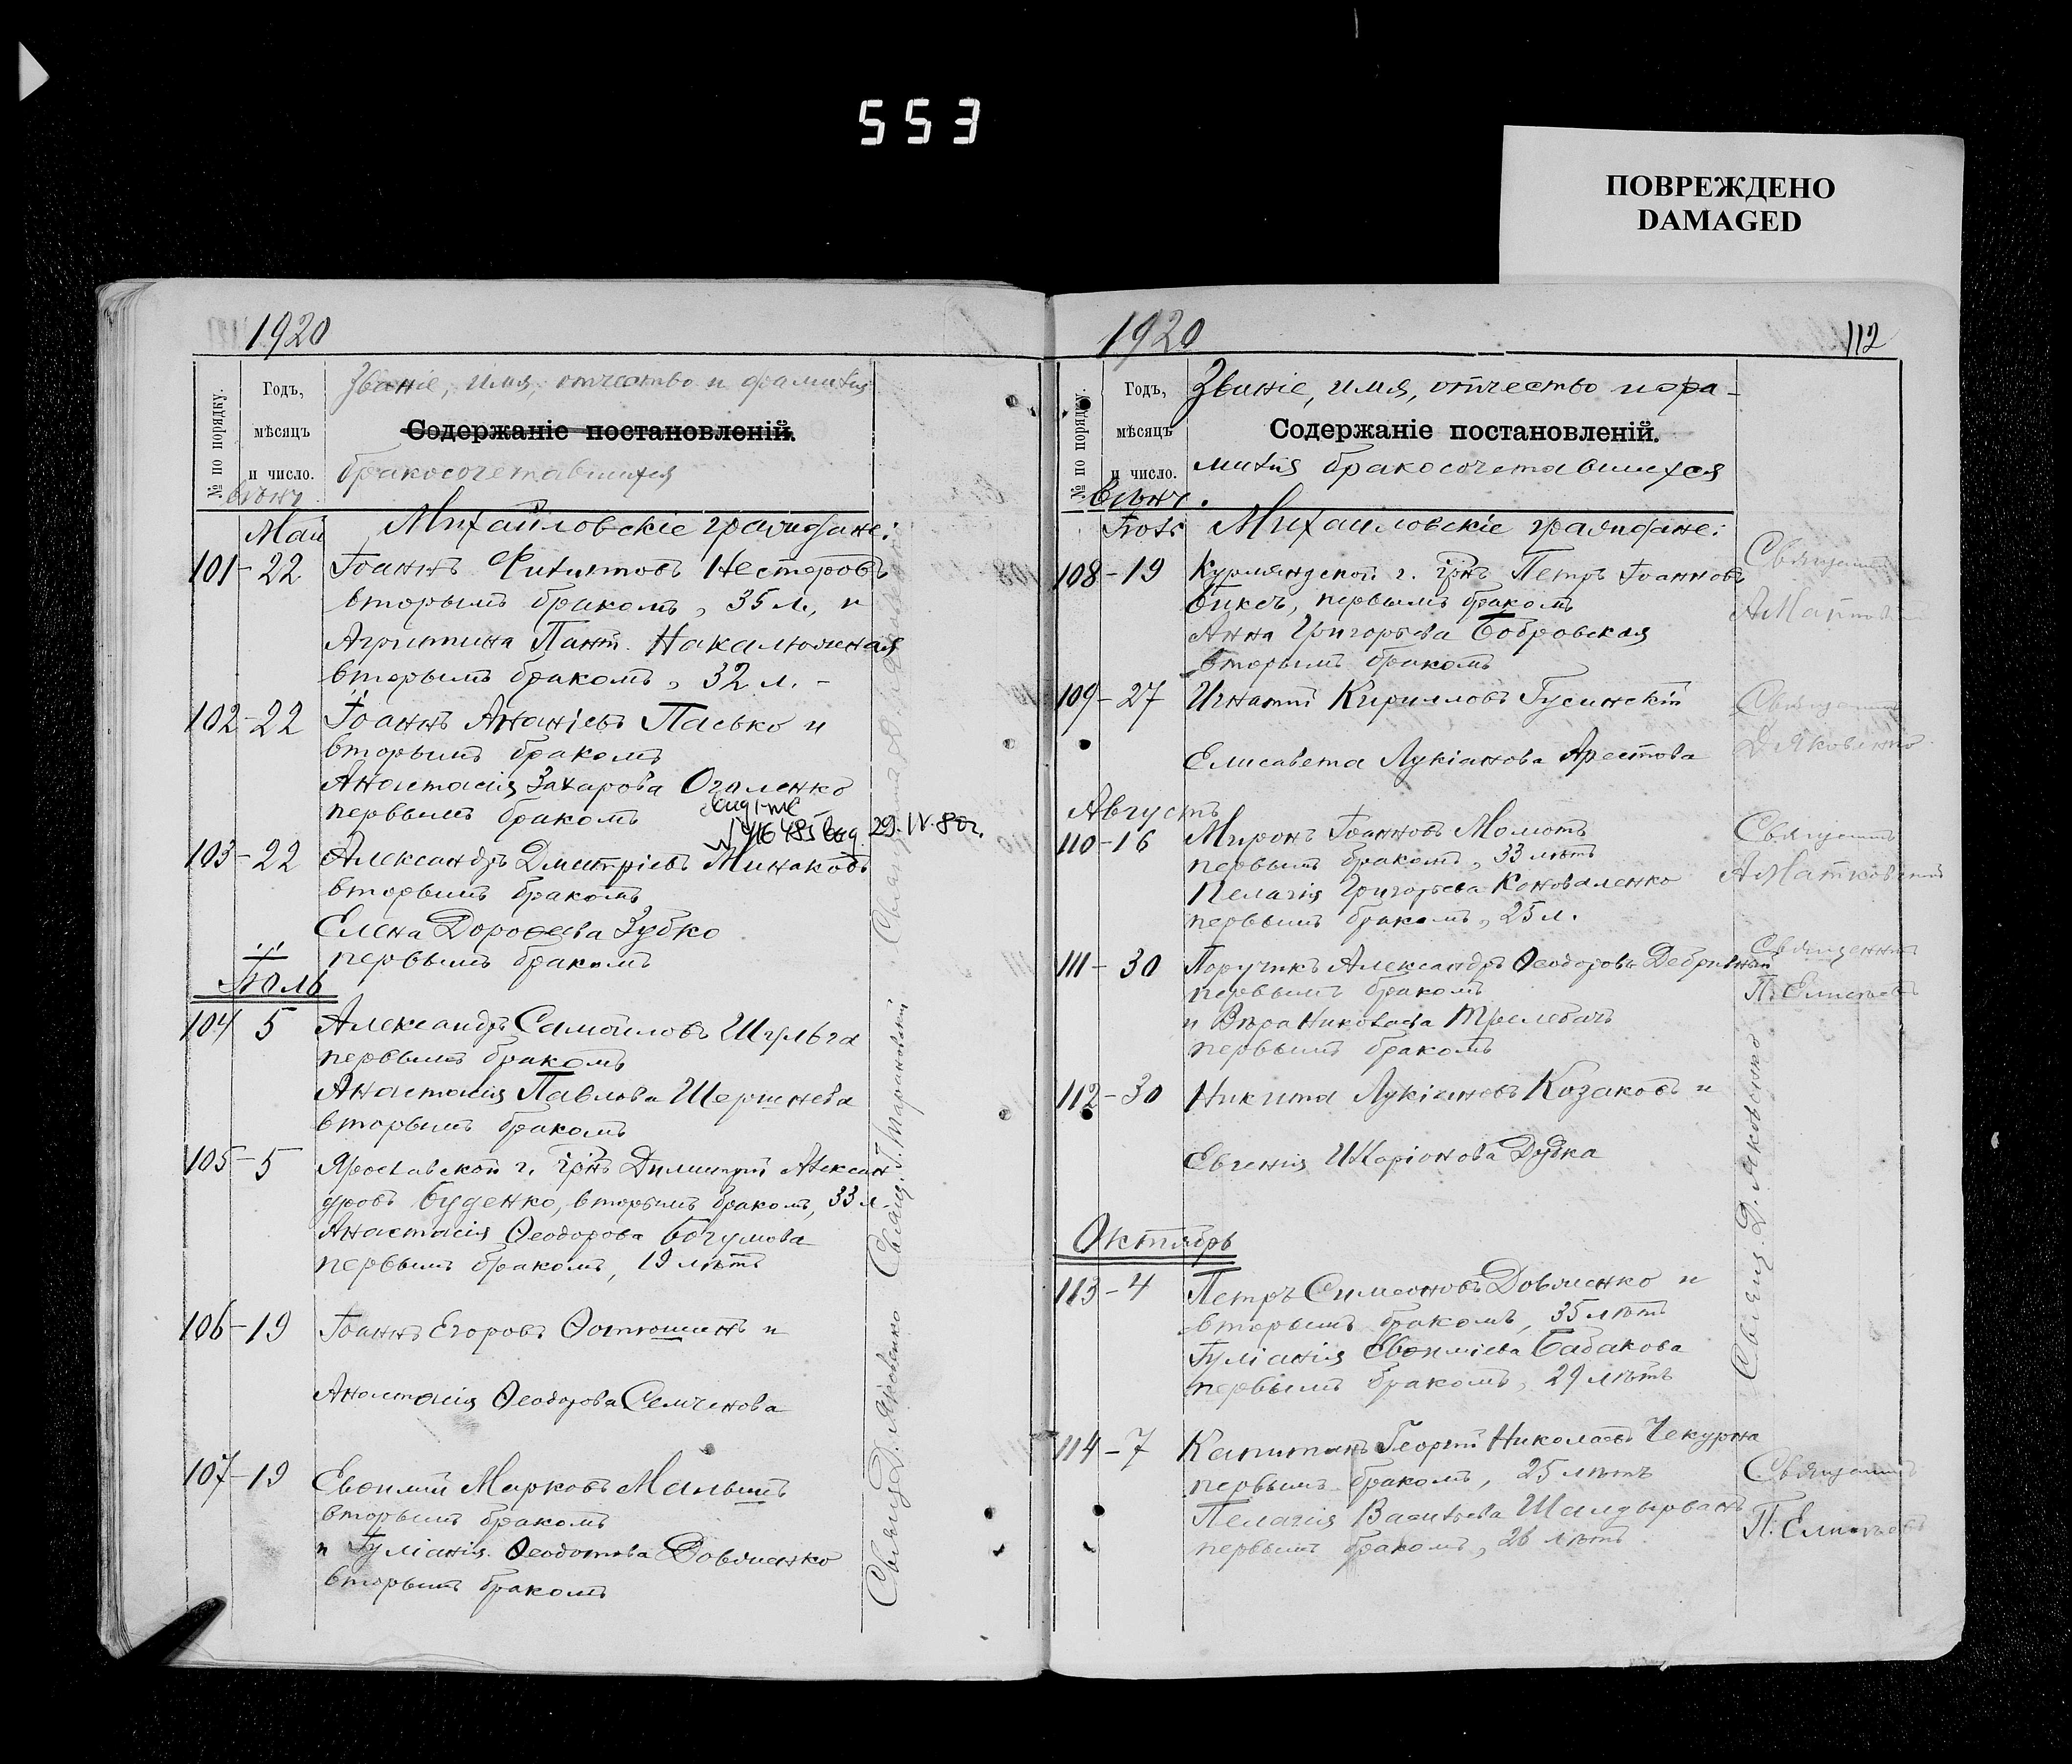 553
ПОВРЕЖДЕНО
DAMAGED
1920
№ по порядку.
Годъ,
мѣсяцъ
и число.
Званіе, имя, отчество и фамилія
Содержаніе постановленій.
бракосочетавшихся
Май Михайловскіе граждане:
101-22 Іоаннъ Нестеровъ
вторымъ бракомъ, 35 л., и
Агрипина Пант.
вторымъ бракомъ, 32 л. -
102-22 Іоаннъ Ананіевъ Пасько и
вторымъ бракомъ
Анастасія Захарова Оголенко
первымъ бракомъ
29.IV.80г.
103-22 Александръ Дмитріевъ Минаковъ
вторымъ бракомъ
Елена Дороѳеева Зубко
первымъ бракомъ
Іюль
104 5 Александръ Самойловъ Шульга
первымъ бракомъ
Анастасія Павлова Шершнева
вторымъ бракомъ
105-5 Ярославской г. грнъ Димитрій Алексан
дровъ Буденко, вторымъ бракомъ, 33 л.
Анастасія Ѳеодорова Богумова
первымъ бракомъ, 19 лѣтъ
106-19 Іоаннъ Егоровъ и
Анастасія Ѳеодорова Семченова
107-19 Евѳимій Марковъ
вторымъ бракомъ
и Іуліанія Ѳеодотова Довженко
вторымъ бракомъ
Свящ. Д. Яковенко
Свящ. І. Тарановскій
1920
112
№ по порядку.
Годъ,
мѣсяцъ
и число.
Званіе, имя, отчество и фа-
Содержаніе постановленій.
милія бракосочетавшихся
вѣнч.
Михайловскіе граждане:
108-19 Курляндской г. грнъ Петръ Іоанновъ
первымъ бракомъ
Анна Григорьева Бобровская
вторымъ бракомъ
109-27 Игнатій Кирилловъ Гусинскій
Священникъ
Д. Яковенко
Елисавета Лукіанова Арестова
Августъ
110-16 Миронъ Іоанновъ
первымъ бракомъ, 33 лѣтъ
Пелагія Григорьева Коноваленко
первымъ бракомъ, 25 л.
Священникъ
А. Матковскій
111-30 Поручикъ Александръ Ѳеодоровъ
первымъ бракомъ
и Вѣра Николаева
первымъ бракомъ
Священникъ
112-30 Никита Лукіановъ Козаковъ и
Евгенія Иларіонова Дудка
Октябрь
113-4 Петръ Симеоновъ Довженко и
вторымъ бракомъ, 35 лѣтъ
Іуліанія Евѳиміева Бабакова
первымъ бракомъ, 29 лѣтъ
Свящ. Д. Яковенко
114-7 Капитанъ Георгій Николаевъ Чекурна
первымъ бракомъ, 25 лѣтъ
Пелагія Васильева
первымъ бракомъ, 26 лѣтъ
Священникъ